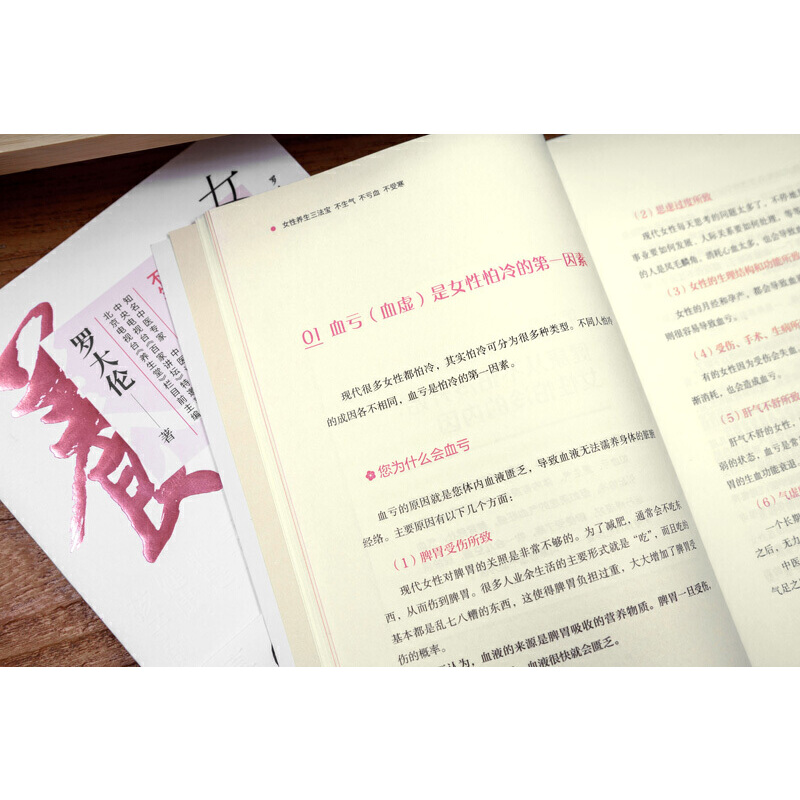 女
养
罗大伦
著
知名中医专家
中央电视台《百家讲坛》特
北京电视台《养生堂》栏目前主编
女性养生三法宝 不生气 不亏血 不受寒
01 血亏（血虚）是女性怕冷的第一因素
现代很多女性都怕冷，其实怕冷可分为很多种类型。不同人怕冷
的成因各不相同，血亏是怕冷的第一因素。
您为什么会血亏
血亏的原因就是您体内血液匮乏，导致血液无法濡养身体的脏腑
经络。主要原因有以下几个方面：
（1）脾胃受伤所致
现代女性对脾胃的关照是非常不够的。为了减肥，通常会不吃东
西，从而伤到脾胃。很多人业余生活的主要形式就是“吃”，而且吃的
基本都是乱七八糟的东西，这使得脾胃负担过重，大大增加了脾胃受
伤的概率。
认为，血液的来源是脾胃吸收的营养物质。脾胃一旦受伤，
血液很快就会匮乏。
（2）思虑过度所致
现代女性每天思考的问题太多了，不停地
事业要如何发展，人际关系要如何处理，等等
的人是凤毛麟角，消耗心血太多，也会导致血
（3）女性的生理结构和功能所致
女性的月经和孕产，都会导致血
则很容易导致血亏。
（4）受伤、手术、生病所
有的女性因为受伤会失血
渐消耗，也会造成血亏。
（5）肝气不舒所致
肝气不舒的女性，
弱的状态，血亏是常
胃的生血功能衰退
（6）气虚
一个长期
之后，无力
中医
气足之